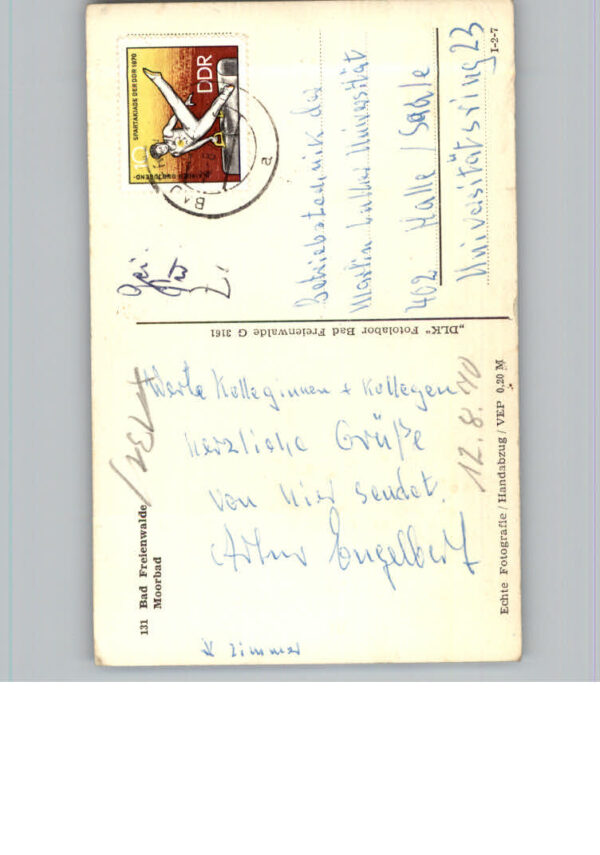 131 Bad Freienwalde
Moorbad
Werte Kolleginnen + Kollegen
herzliche Grüße
von hier sendet.
Artur Engelbert
Zimmer
12.8.70
Echte Fotografie / Handabzug / VEP 0,20 M
"DLK" Fotolabor Bad Freienwalde G 3161
SPARTAKIADE DER DDR 1970
DDR
10
a
Betriebstechnik der
Martin Luther Universität
402 Halle / Saale
Universitätsring 23
I-2-7